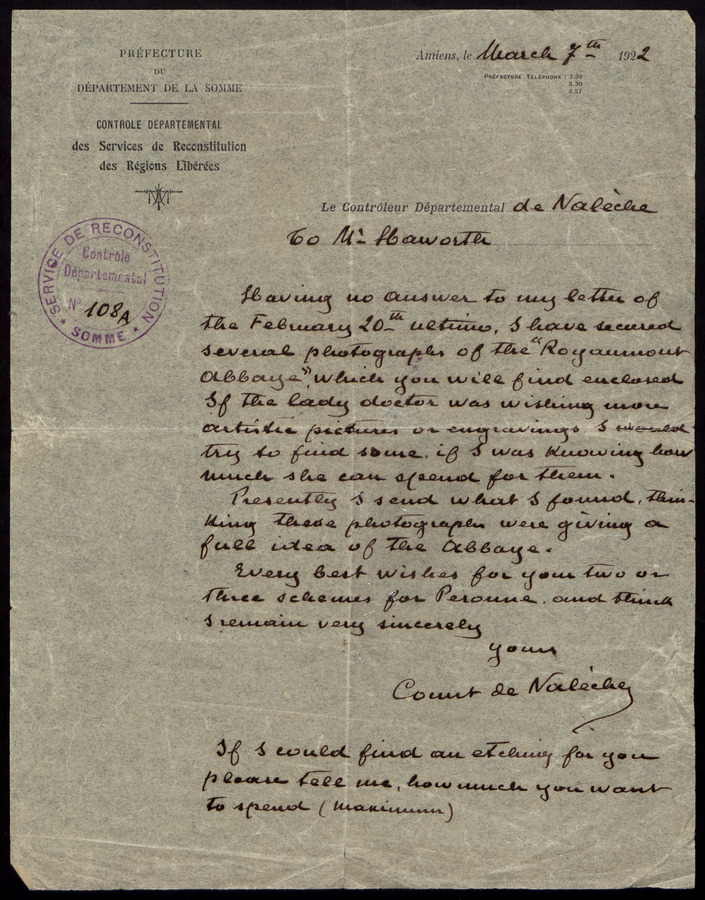 PRÉFECTURE
DU
DÉPARTEMENT DE LA SOMME
CONTROLE DÉPARTEMENTAL
des Services de Reconstitution
des Régions Libérées
Amiens, le March 7th 1922
PRÉFECTURE TÉLÉPHONE : 7.99
8.36
8.37
Le Contrôleur Départemental de Nalèche
To Mr Haworth
SERVICE DE RECONSTITUTION
Contrôle
Départemental
N° 108A
★ SOMME ★
Having no answer to my letter of
the February 20th ultimo, I have secured
several photographs of the "Royaumont
Abbaye", which you will find enclosed
If the lady doctor was wishing more
artistic pictures or engravings I would
try to find some, if I was knowing how
much she can spend for them.
Presently I send what I found, thin-
king these photographs were giving a
full idea of the Abbaye.
Every best wishes for your two or
three schemes for Peronne, and think
I remain very sincerely
yours
Count de Nalèche
If I could find an etching for you
please tell me, how much you want
to spend (maximum)